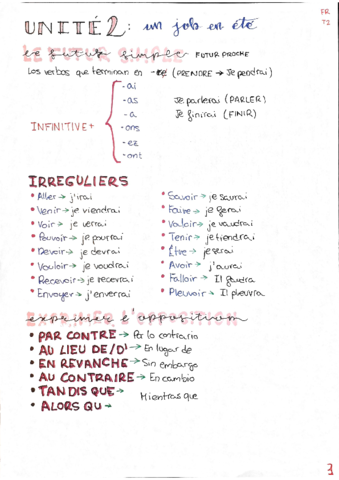 FR
T2
UNITÉ 2: un job en été
LE FUTUR SIMPLE FUTUR PROCHE
Los verbos que terminan en -re (PRENDRE → Je pendrai)
INFINITIVE +
-ai
-as
-a
-ons
-ez
-ont
Je parlerai (PARLER)
Je finirai (FINIR)
IRREGULIERS
• Aller → j'irai
• Venir → je viendrai
• Voir → je verrai
• Pouvoir → je pourrai
• Devoir → je devrai
• Vouloir → je voudrai
• Recevoir → je recevrai
• Envoyer → j'enverrai
• Savoir → je saurai
• Faire → je ferai
• Valoir → je vaudrai
• Tenir → je tiendrai
• Être → je serai
• Avoir → j'aurai
• Falloir → Il faudra
• Pleuvoir → Il pleuvra
exprimer l'opposition
• PAR CONTRE → Por lo contrario
• AU LIEU DE/D' → En lugar de
• EN REVANCHE → Sin embargo
• AU CONTRAIRE → En cambio
• TANDIS QUE →
Mientras que
• ALORS QU →